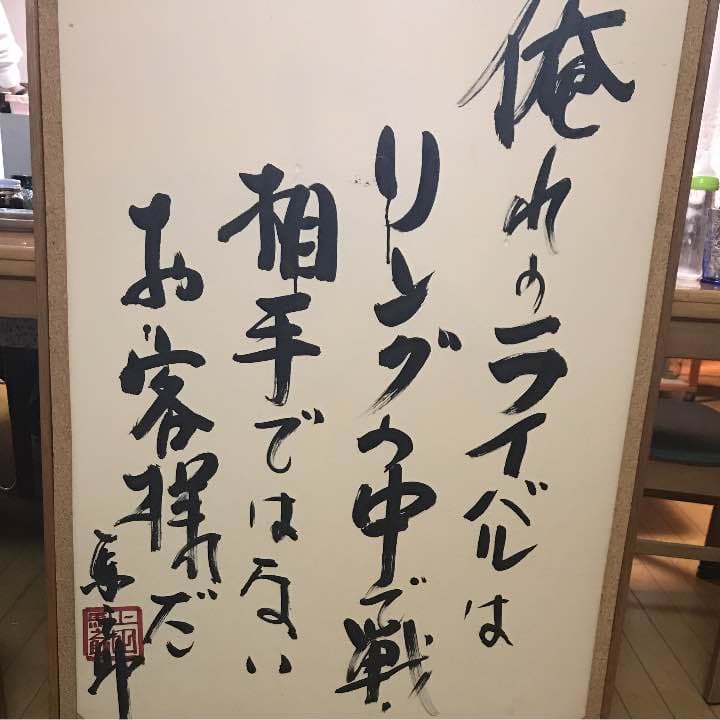 俺れのライバルは
リングの中で戦う
相手ではない
お客様だ